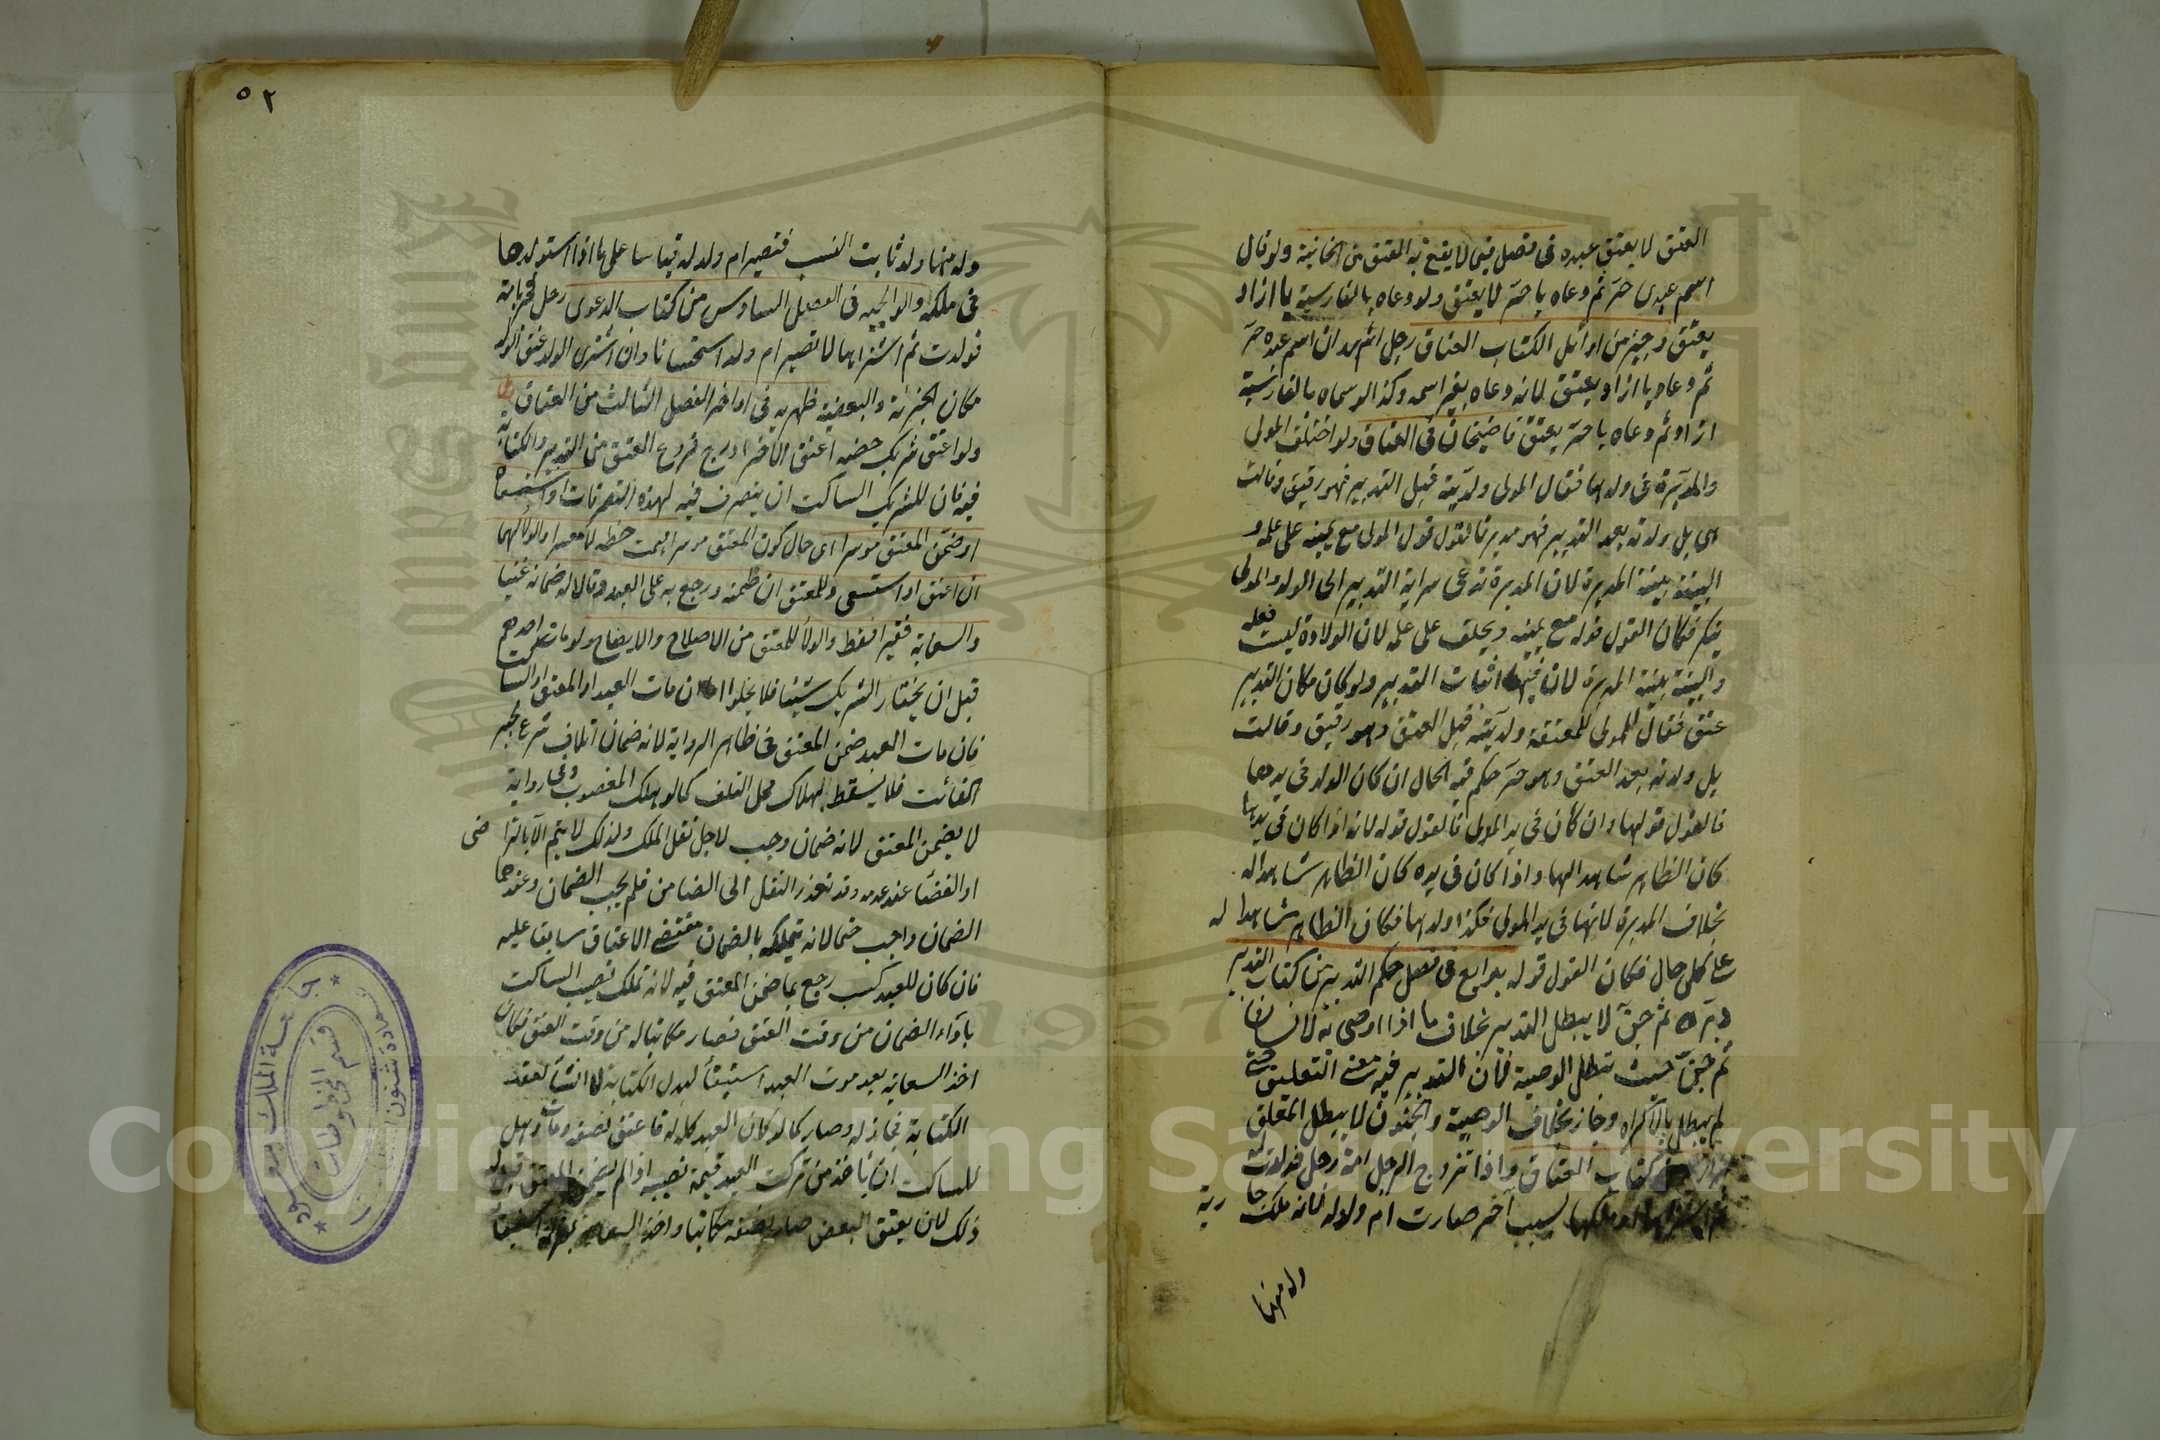 العتق لا يعتق عبده في فصل فيما لا يقع به العتق من الخانية ولو قال
اسم عبدي حر ثم دعاه يا حر لا يعتق ولو دعاه بالفارسية يا ازاد
يعتق وجيز من اوائل الكتاب العتاق رجل اشهد ان اسم عبده حر
ثم دعاه يا ازاد يعتق لانه دعاه بغير اسمه وكذا لو سماه بالفارسية
ازاد ثم دعاه يا حر يعتق قاضيخان في العتاق ولو اختلف المولى
والمدبرة في ولدها فقال المولى ولدتيه قبل التدبير فهو رقيق وقالت
هي بل ولدته بعد التدبير فهو مدبر فالقول قول المولى مع يمينه على علمه و
البينة بينة المدبرة لان المدبرة تدعى سراية التدبير الى الولد والمولى
ينكر فكان القول قوله مع يمينه ويحلف على علمه لان الولادة ليست فعله
والبينة بينة المدبرة لان فيها اثبات التدبير ولو كان مكان التدبير
عتق فقال المولى للمعتقة ولدتيه قبل العتق وهو رقيق وقالت
بل ولدته بعد العتق وهو حر حكم فيه الحال ان كان الولد في يدها
فالقول قولها وان كان في يد المولى فالقول قوله لانه اذا كان في يدها
كان الظاهر شاهدا لها واذا كان في يده كان الظاهر شاهدا له
بخلاف المدبرة لانها في يد المولى فكذا ولدها فكان الظاهر شاهدا له
على كل حال فكان القول قوله بدايع في فصل حكم التدبير من كتاب التدبير
دبره ثم جن لا يبطل التدبير بخلاف ما اذا اوصى به لانسان
ثم جن حيث تبطل الوصية فان التدبير فيه معنى التعليق حتى
لم يبطل بالاكراه وجاز بخلاف الوصية والجنون لا يبطل التعلق
كتاب العتاق واذا تزوج الرجل امة رجل فولدت
ثم اشتراها او ملكها لسبب آخر صارت ام ولد له لانه ملك جارية
وله منها
٥٢
وله منها ولد ثابت النسب فتصير ام ولد له قياسا على ما اذا استولدها
في ملكه والوالجيه في الفصل السادس من كتاب الدعوى رجل فجر بامة
فولدت ثم اشتراها لا تصير ام ولد استحسانا وان اشترى الولد عتق الولد
مكان الجزئية والبعضية ظهيريه في اواخر الفصل الثالث من العتاق
ولو اعتق شريك حصته اعتق الاخر ادرج فروع العتق من التدبير والكتابة
فيه فان للشريك الساكت ان يتصرف فيه لهذه التصرفات او استسعاه
او ضمن المعتق موسرا اى حال كون المعتق موسرا قيمت حظه لا معسرا والولاء لهما
ان اعتق او استسعى وللمعتق ان ضمنه ورجع به على العبد وقالا له ضمانه غنيا
والسعاية فقيرا فقط والولاء للمعتق من الاصلاح والايضاح ولو مات احدهم
قبل ان يختار الشريك شيئا فلا يخلوا ان مات العبد او المعتق او الساكت
فان مات العبد ضمن المعتق في ظاهر الرواية لانه ضمان اتلاف شرع لجبر
الفائت فلا يسقط بهلاك محل التلف كما لو هلك المغصوب وفي رواية
لا يضمن المعتق لانه ضمان وجب لاجل نقل الملك ولذلك لا يتم الا بالتراضى
او القضاء عند عدمه وقد تعذر النقل الى الضامن فلم يجب الضمان وعندهما
الضمان واجب حتما لانه تملكه بالضمان مقتضى الاعتاق سابقا عليه
فان كان للعبد كسب رجع بما ضمن المعتق فيه لانه تملك نصيب الساكت
باداء الضمان من وقت العتق فصار مكاتبا له من وقت العتق فكان
اخذ السعاية بعد موت العبد استيفاء لبدل الكتابة لا انشاء لعقد
الكتابة فجاز له وصار كما لو كان العبد كله له فاعتق نصفه ومات وهل
للساكت ان ياخذ من تركت العبد قيمة نصيبه اذا لم يضمن المعتق قيل له
ذلك لان بعتق البعض صار نصفه مكاتبا واخذ السعاية بمنزلة استيفاء
جامعة الملك سعود
عمادة شئون
قسم المخطوطات
King Saud University
1957
Copyright © King Saud University